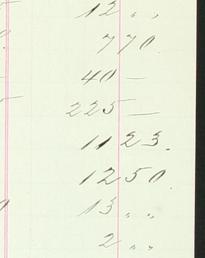 12 " "
770.
40 —
225 —
1123.
1250.
13 " "
2 " "